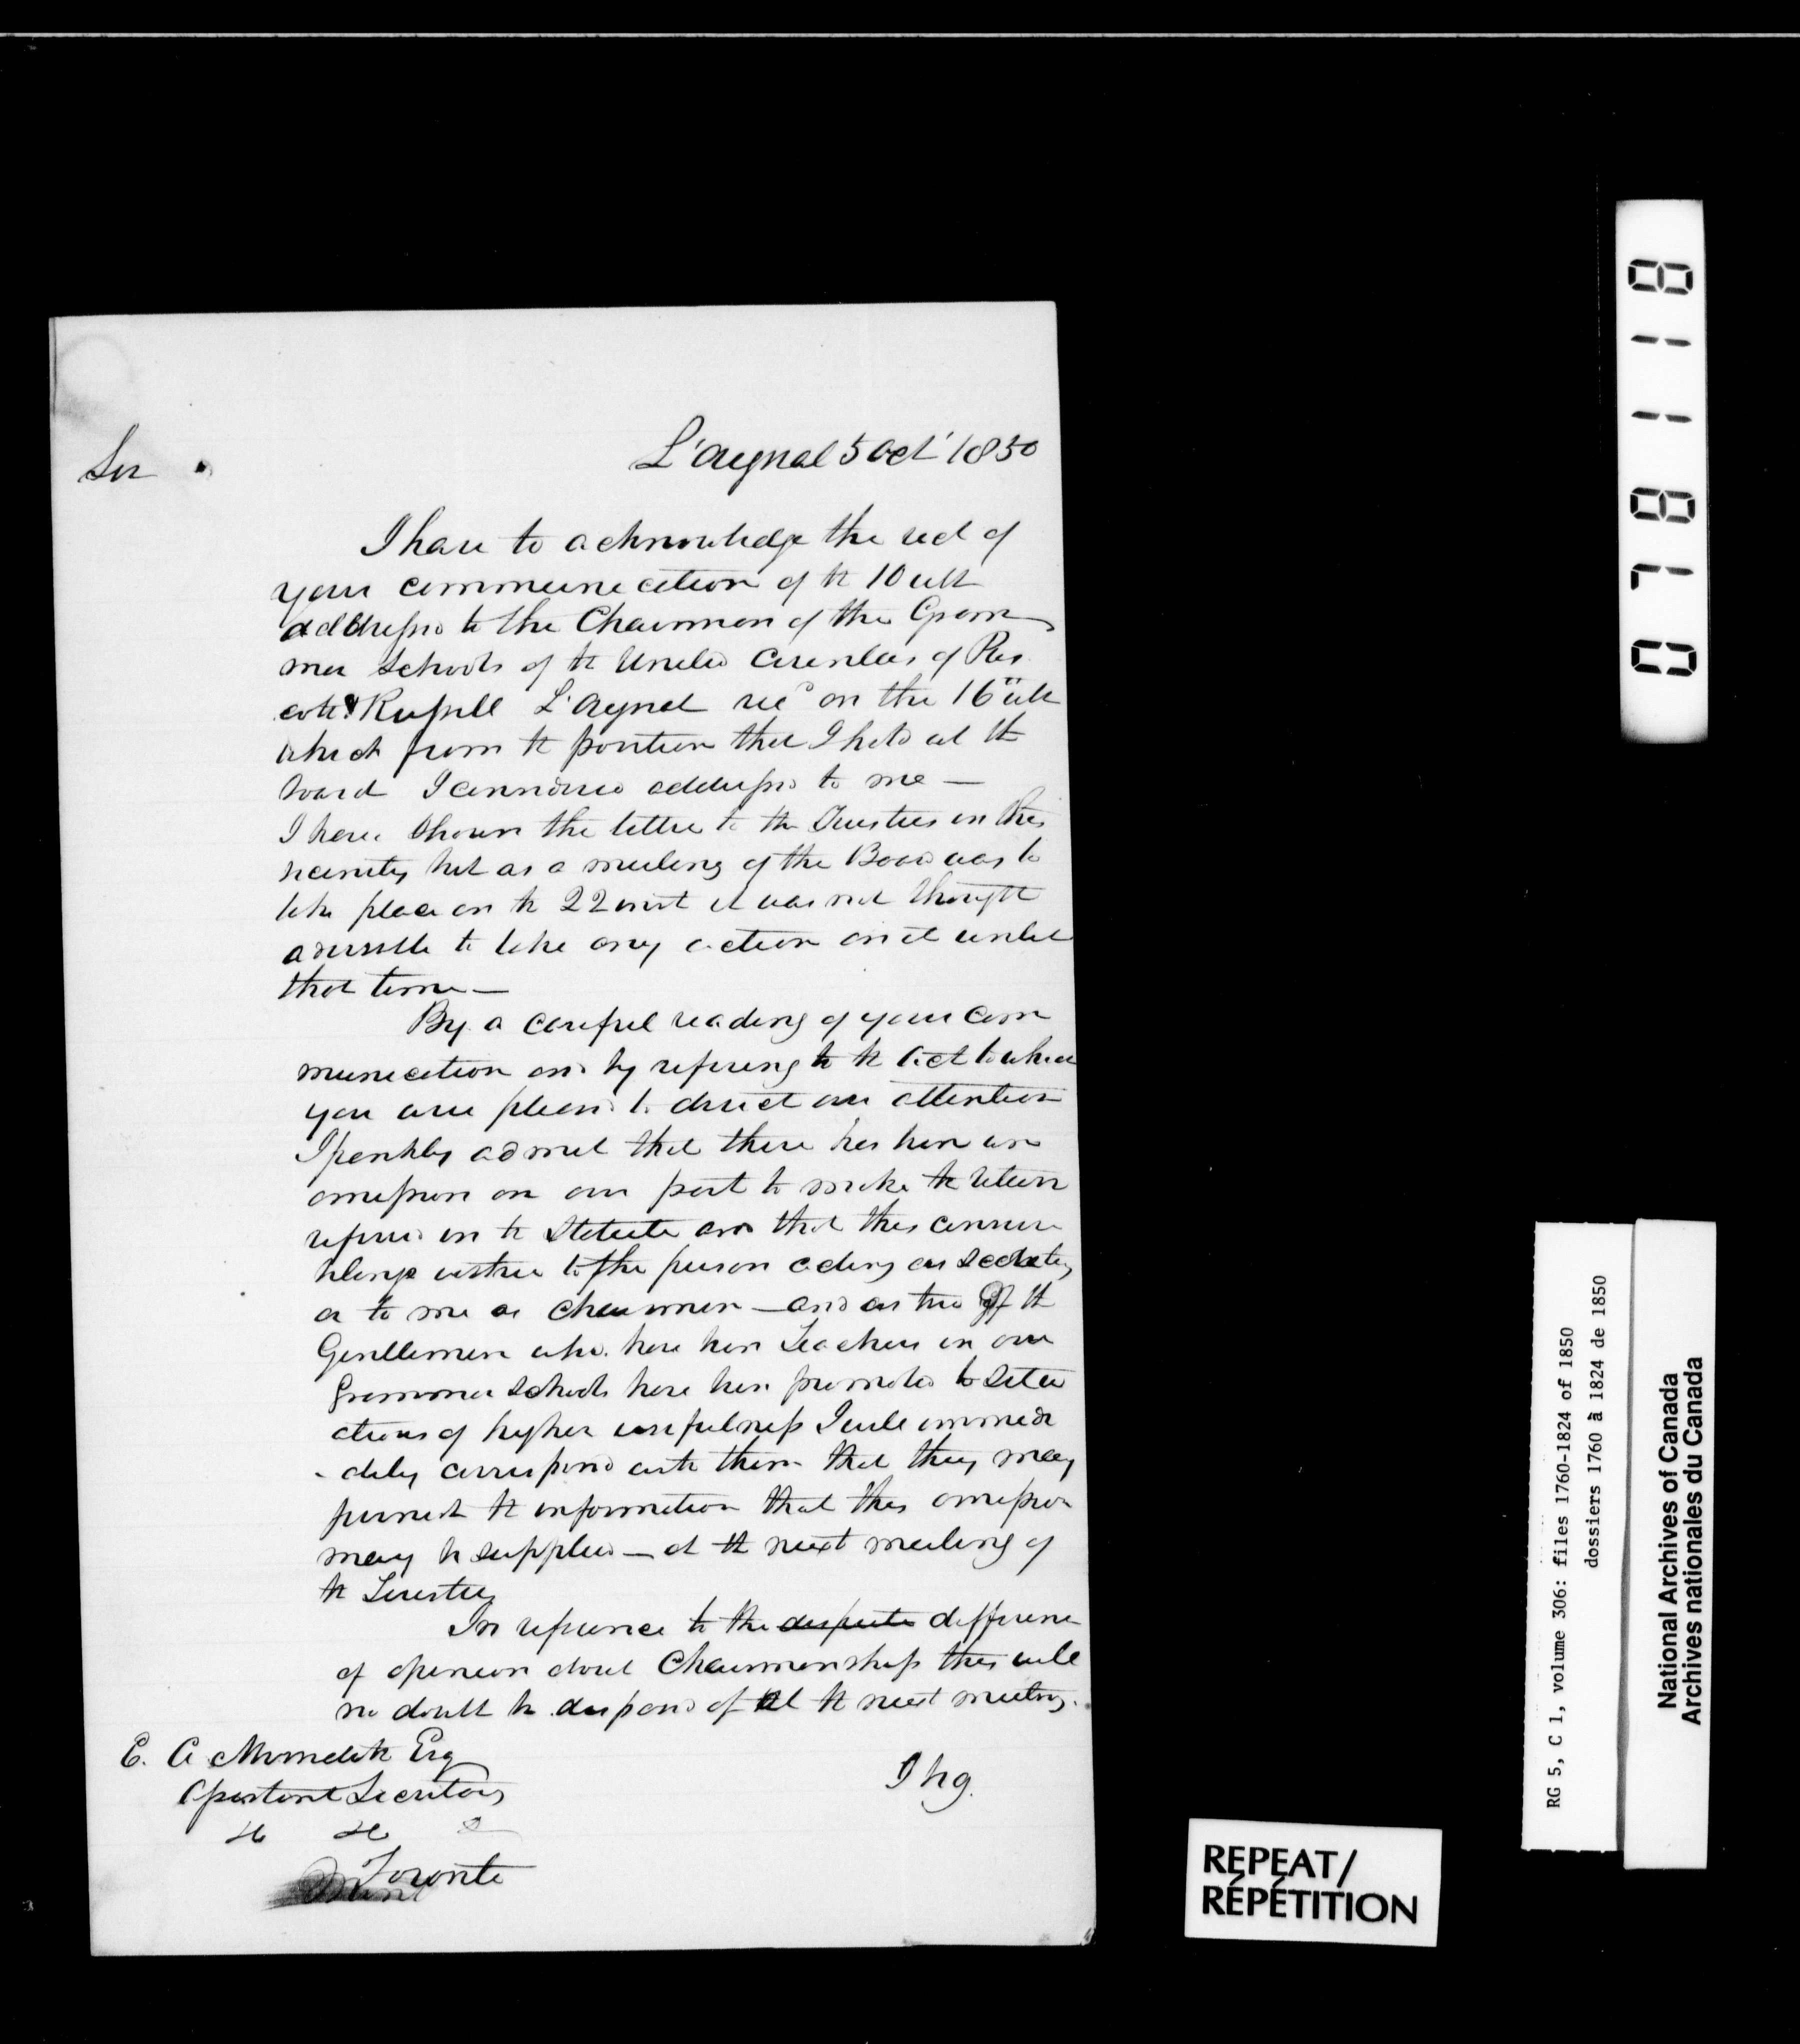 L'Orignal 5 Oct' 1850
Sir
I have to acknowledge the rect of
your communication of the 10 ult
addressed to the Chairman of the Gram
mar Schools of the United Counties of Pres
cott & Russell L'Orignal recd on the 16th ult
which from the position that I hold at the
board I considered addressed to me —
I have shown the letter to the Trustees in this
vicinity but as a meeting of the Board was to
take place on the 22 inst it was not thought
advisable to take any action on it until
that time —
By a careful reading of your com
munication and by refering to the Act to which
you are pleased to direct our attention
I frankly admit that there has been an
omission on our part to make the return
refered in the Statute and that this censure
belongs either to the person acting as Secretary
or to me as Chairman — and as two of the
Gentlemen who have been Teachers in our
Grammar Schools have been promoted to situ
ations of higher usefulness I will immedi
- ately correspond with them that they may
furnish the information that this omission
may be supplied — at the next meeting of
the Trustees
In reference to the dispute difference
of opinion about Chairmanship this will
no doubt be disposed of at the next meeting.
E. A. Meredith Esq
Assistant Secretary
&c &c &c
Toronto
I hg.
0781118
RG 5, C 1, volume 306: files 1760-1824 of 1850
dossiers 1760 à 1824 de 1850
National Archives of Canada
Archives nationales du Canada
REPEAT/
RÉPÉTITION